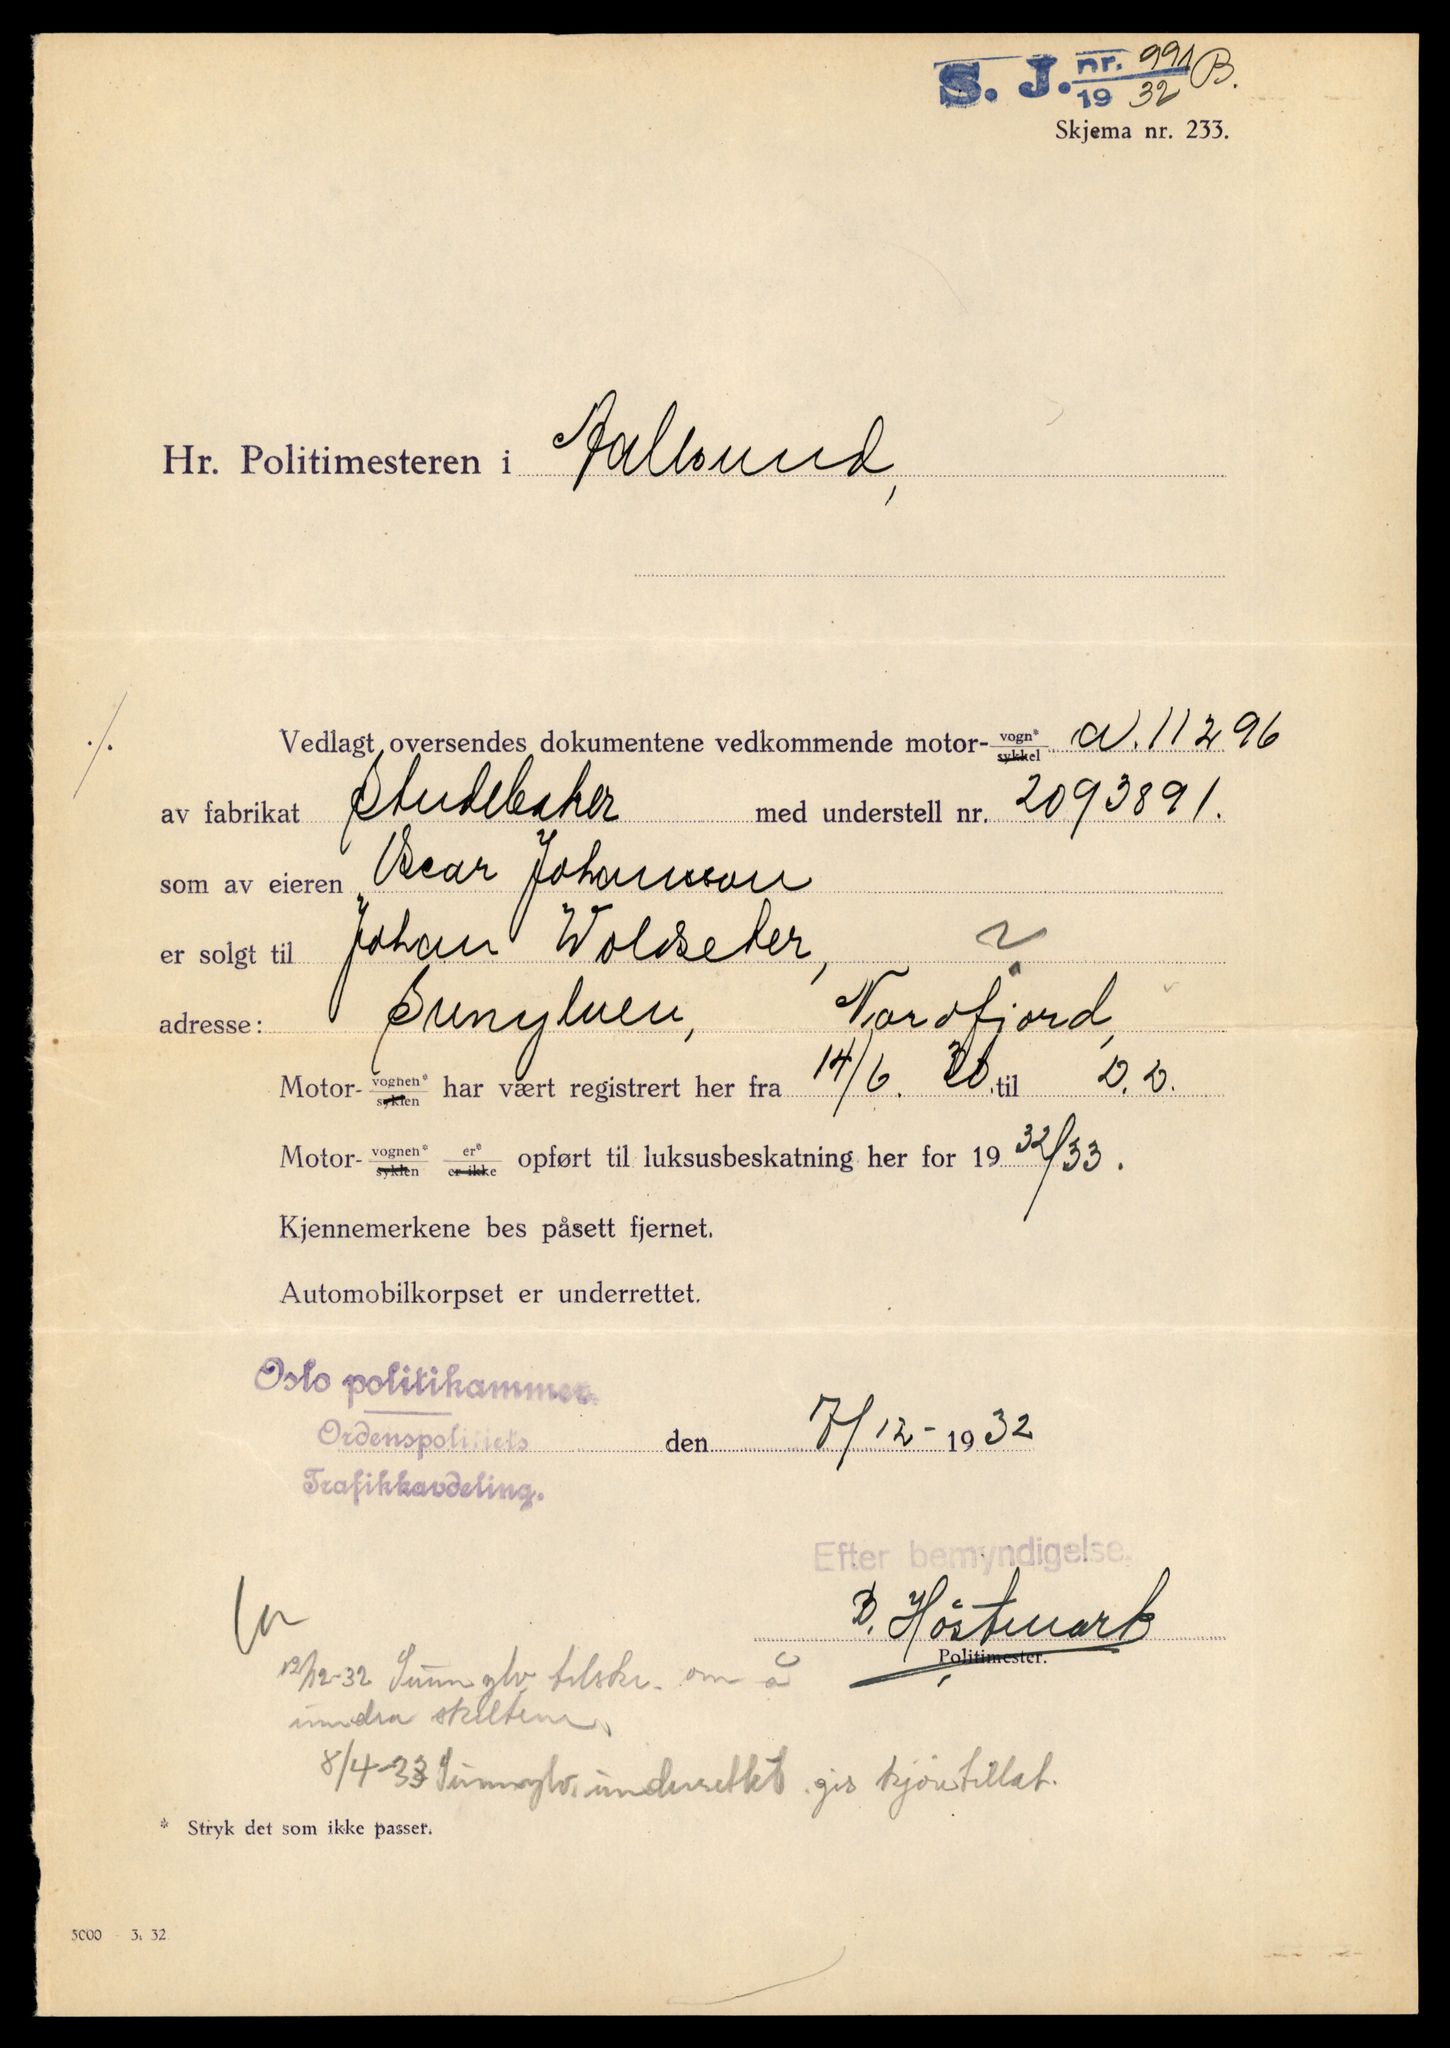 S. J. nr. 991 B.
19 32
Skjema nr. 233.
Hr. Politimesteren i Aalesund,
./.
Vedlagt oversendes dokumentene vedkommende motor- vogn* sykkel A. 11296
av fabrikat Studebaker med understell nr. 2093891.
som av eieren Oscar Johansson
er solgt til Johan Woldseter, ?
adresse: Sunylven, Nordfjord,
Motor- vognen* syklen har vært registrert her fra 14/6. 30. til D.D.
Motor- vognen* syklen er* er ikke opført til luksusbeskatning her for 19 32/33.
Kjennemerkene bes påsett fjernet.
Automobilkorpset er underrettet.
Oslo politikammer.
Ordenspolitiets den 7/12-1932
Trafikkavdeling.
Efter bemyndigelse.
D. Höstmark
Politimester.
12/12-32 Sunnylv tilskr. om å
inndra skiltene.
8/4-33 Sunnylv. underrettet gis kjøretillat.
* Stryk det som ikke passer.
5000 - 3. 32